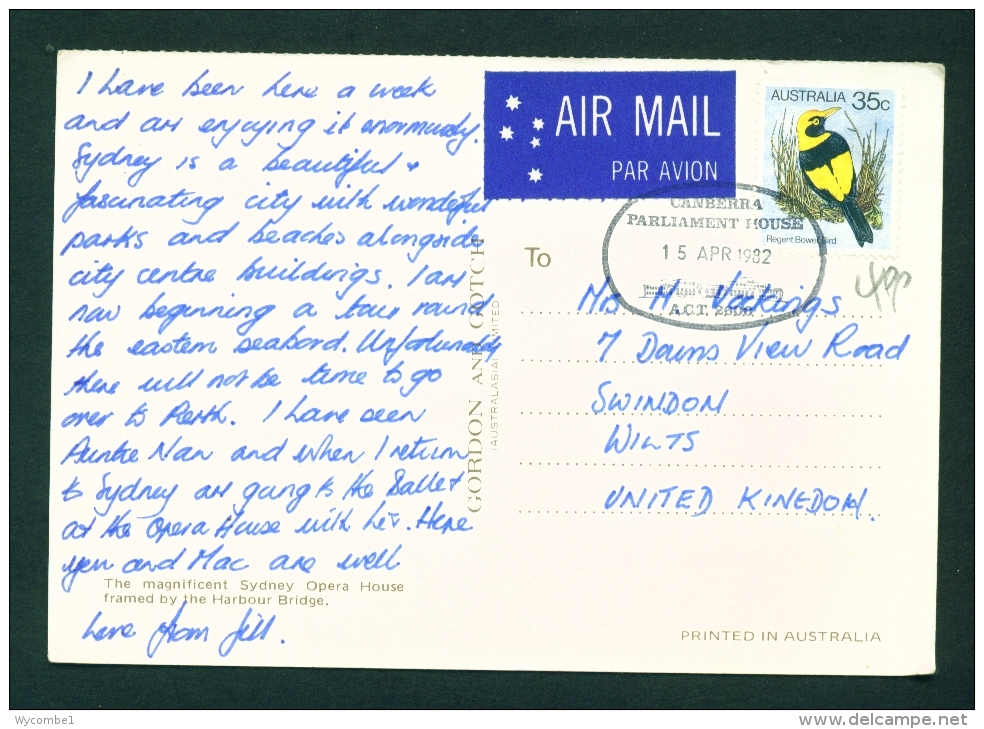 I have been here a week
and am enjoying it enormously.
Sydney is a beautiful +
fascinating city with wonderful
parks and beaches alongside
city centre buildings. I am
now beginning a tour round
the eastern seabord. Unfortunately
there will not be time to go
over to Perth. I have seen
Auntie Nan and when I return
to Sydney am going to the Ballet
at the Opera House with her. Hope
you and Mac are well
The magnificent Sydney Opera House
framed by the Harbour Bridge.
Love from Jill.
GORDON AND GOTCH
(AUSTRALASIA) LIMITED
AIR MAIL
PAR AVION
AUSTRALIA 35c
Regent Bower Bird
CANBERRA
PARLIAMENT HOUSE
15 APR 1982
A.C.T. 2600
To
M. Vockings
7 Downs View Road
SWINDON
WILTS
UNITED KINGDOM.
PRINTED IN AUSTRALIA
Wycombe1
http://www.delcampe.net